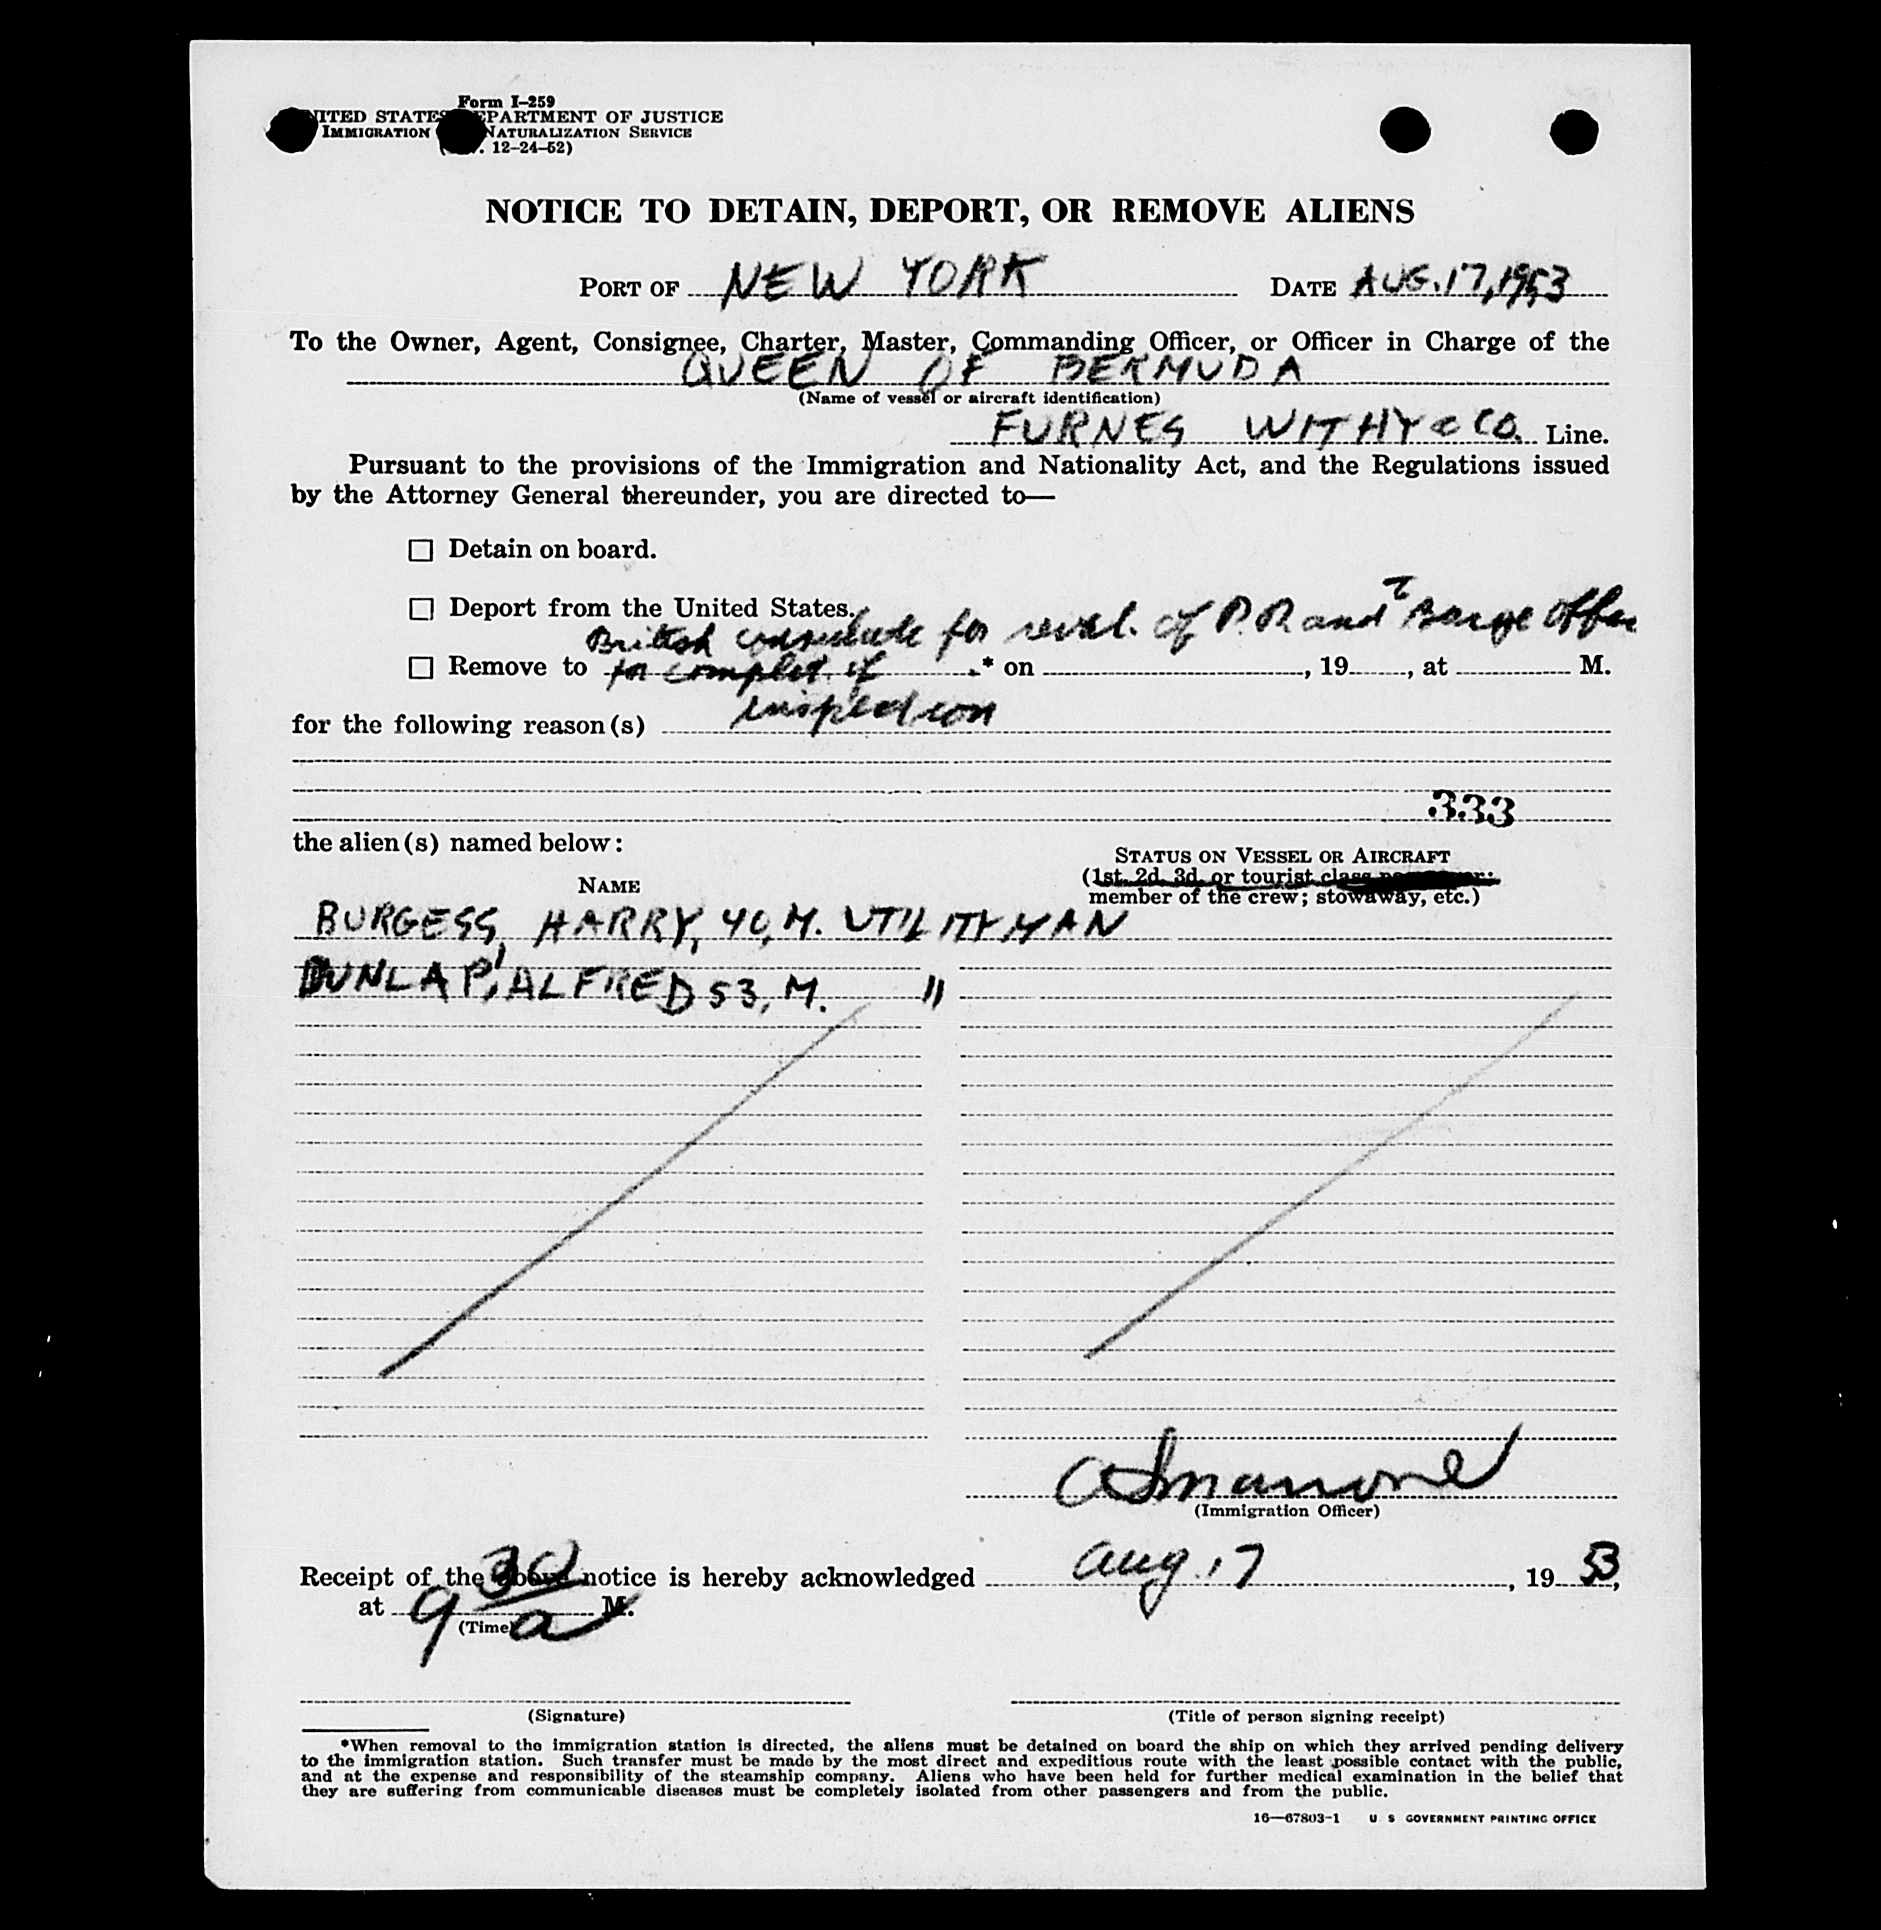 Form I-259
UNITED STATES DEPARTMENT OF JUSTICE
IMMIGRATION NATURALIZATION SERVICE
12-24-52)
NOTICE TO DETAIN, DEPORT, OR REMOVE ALIENS
PORT OF NEW YORK DATE AUG. 17, 1953
To the Owner, Agent, Consignee, Charter, Master, Commanding Officer, or Officer in Charge of the
QUEEN OF BERMUDA
(Name of vessel or aircraft identification)
FURNES WITHY & CO. Line.
Pursuant to the provisions of the Immigration and Nationality Act, and the Regulations issued
by the Attorney General thereunder, you are directed to—
☐ Detain on board.
☐ Deport from the United States.
British consulate for of P.P. and Barge Office
☐ Remove to for complet. of .* on , 19 , at M.
for the following reason(s) inspection
333
the alien(s) named below:
STATUS ON VESSEL OR AIRCRAFT
NAME
(1st, 2d, 3d, or tourist class
member of the crew; stowaway, etc.)
BURGESS, HARRY, 40, M. UTILITYMAN
DUNLAP, ALFRED 53, M. "
(Immigration Officer)
Receipt of the above notice is hereby acknowledged Aug. 17, 1953,
at 9 30 a M.
(Time)
(Signature) (Title of person signing receipt)
*When removal to the immigration station is directed, the aliens must be detained on board the ship on which they arrived pending delivery
to the immigration station. Such transfer must be made by the most direct and expeditious route with the least possible contact with the public,
and at the expense and responsibility of the steamship company. Aliens who have been held for further medical examination in the belief that
they are suffering from communicable diseases must be completely isolated from other passengers and from the public.
16—67803-1 U S GOVERNMENT PRINTING OFFICE